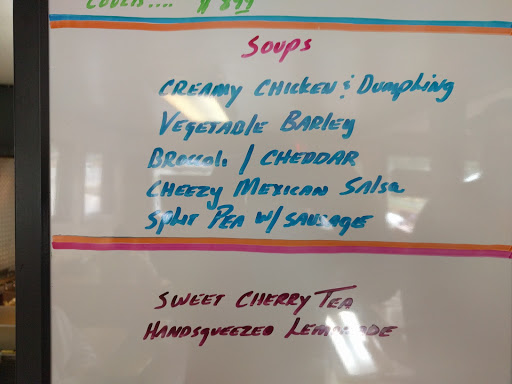 $ 8.99
Soups
CREAMY CHICKEN & Dumpling
VEGETABLE BARLEY
BROCCOLI / CHEDDAR
CHEEZY MEXICAN SALSA
SPLIT PEA W/ SAUSAGE
SWEET CHERRY TEA
HANDSQUEEZED LEMONADE